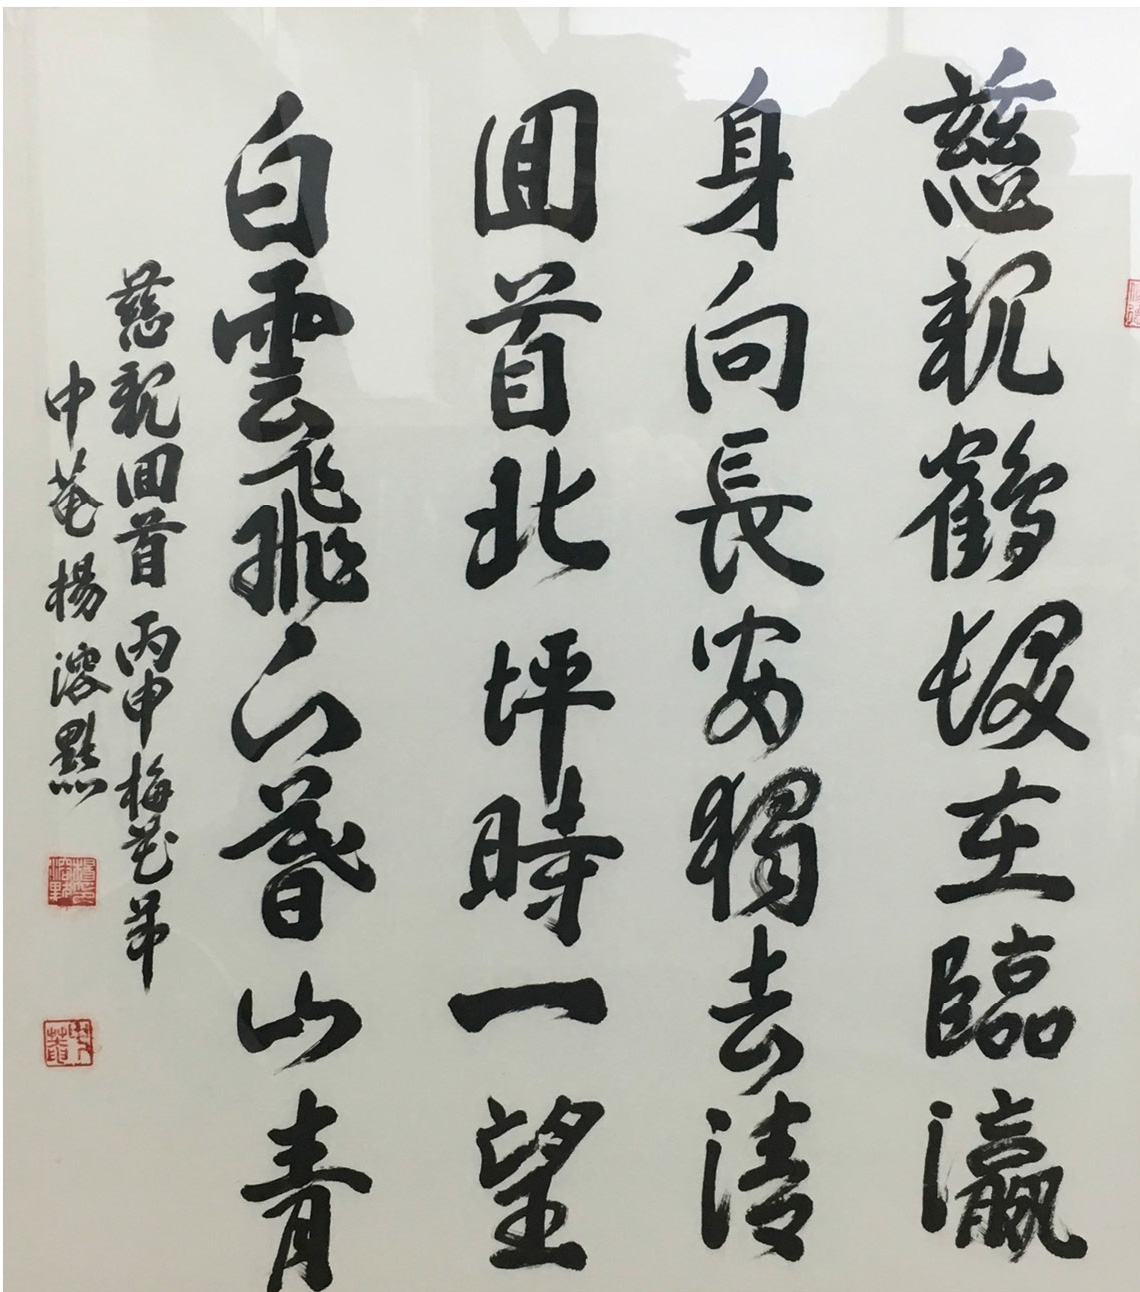 慈親鶴髮在臨瀛
身向長安獨去情
回首北坪時一望
白雲飛下暮山青
慈親回首 丙申梅花節
中菴 楊溶點